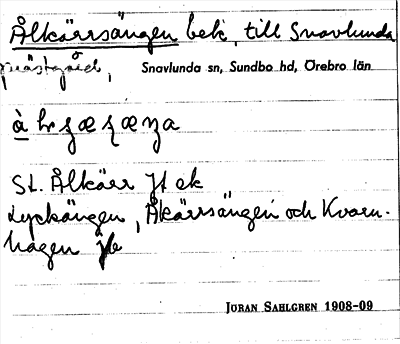 Ålkärrsängen bek. till Snavlunda
prästgård, Snavlunda sn, Sundbo hd, Örebro län
St. Ålkärr jt ek
Lyckängen, Åkärrsängen och Kvarn-
hagen jb
JÖRAN SAHLGREN 1908-09